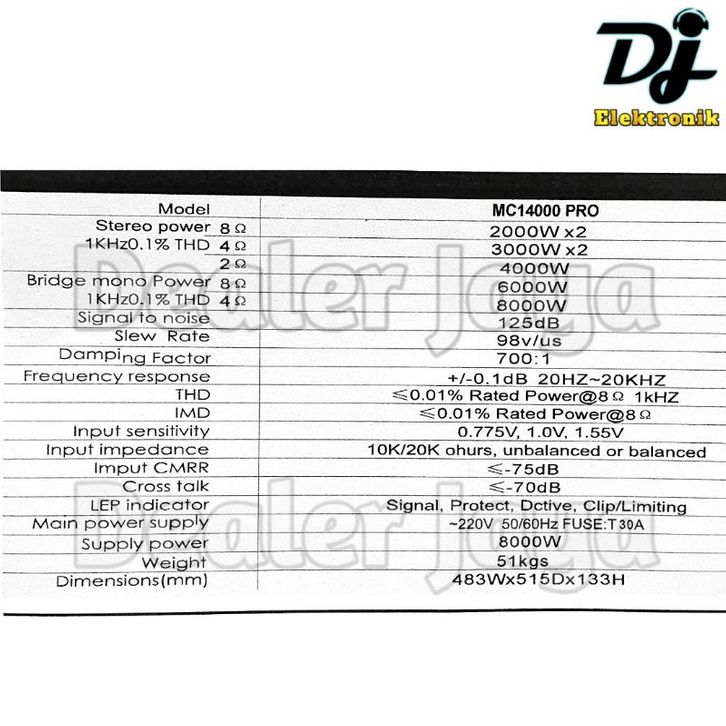 Dj
Elektronik
Model MC14000 PRO
Stereo power 8Ω 2000W x2
1KHz0.1% THD 4Ω 3000W x2
2Ω 4000W
Bridge mono Power 8Ω 6000W
1KHz0.1% THD 4Ω 8000W
Signal to noise 125dB
Slew Rate 98v/us
Damping Factor 700:1
Frequency response +/-0.1dB 20HZ~20KHZ
THD ≤0.01% Rated Power@8Ω 1kHZ
IMD ≤0.01% Rated Power@8Ω
Input sensitivity 0.775V, 1.0V, 1.55V
Input impedance 10K/20K ohurs, unbalanced or balanced
Imput CMRR ≤-75dB
Cross talk ≤-70dB
LEP indicator Signal, Protect, Dctive, Clip/Limiting
Main power supply ~220V 50/60Hz FUSE:T30A
Supply power 8000W
Weight 51kgs
Dimensions(mm) 483Wx515Dx133H
Dealer Jaga
Dealer Jaga